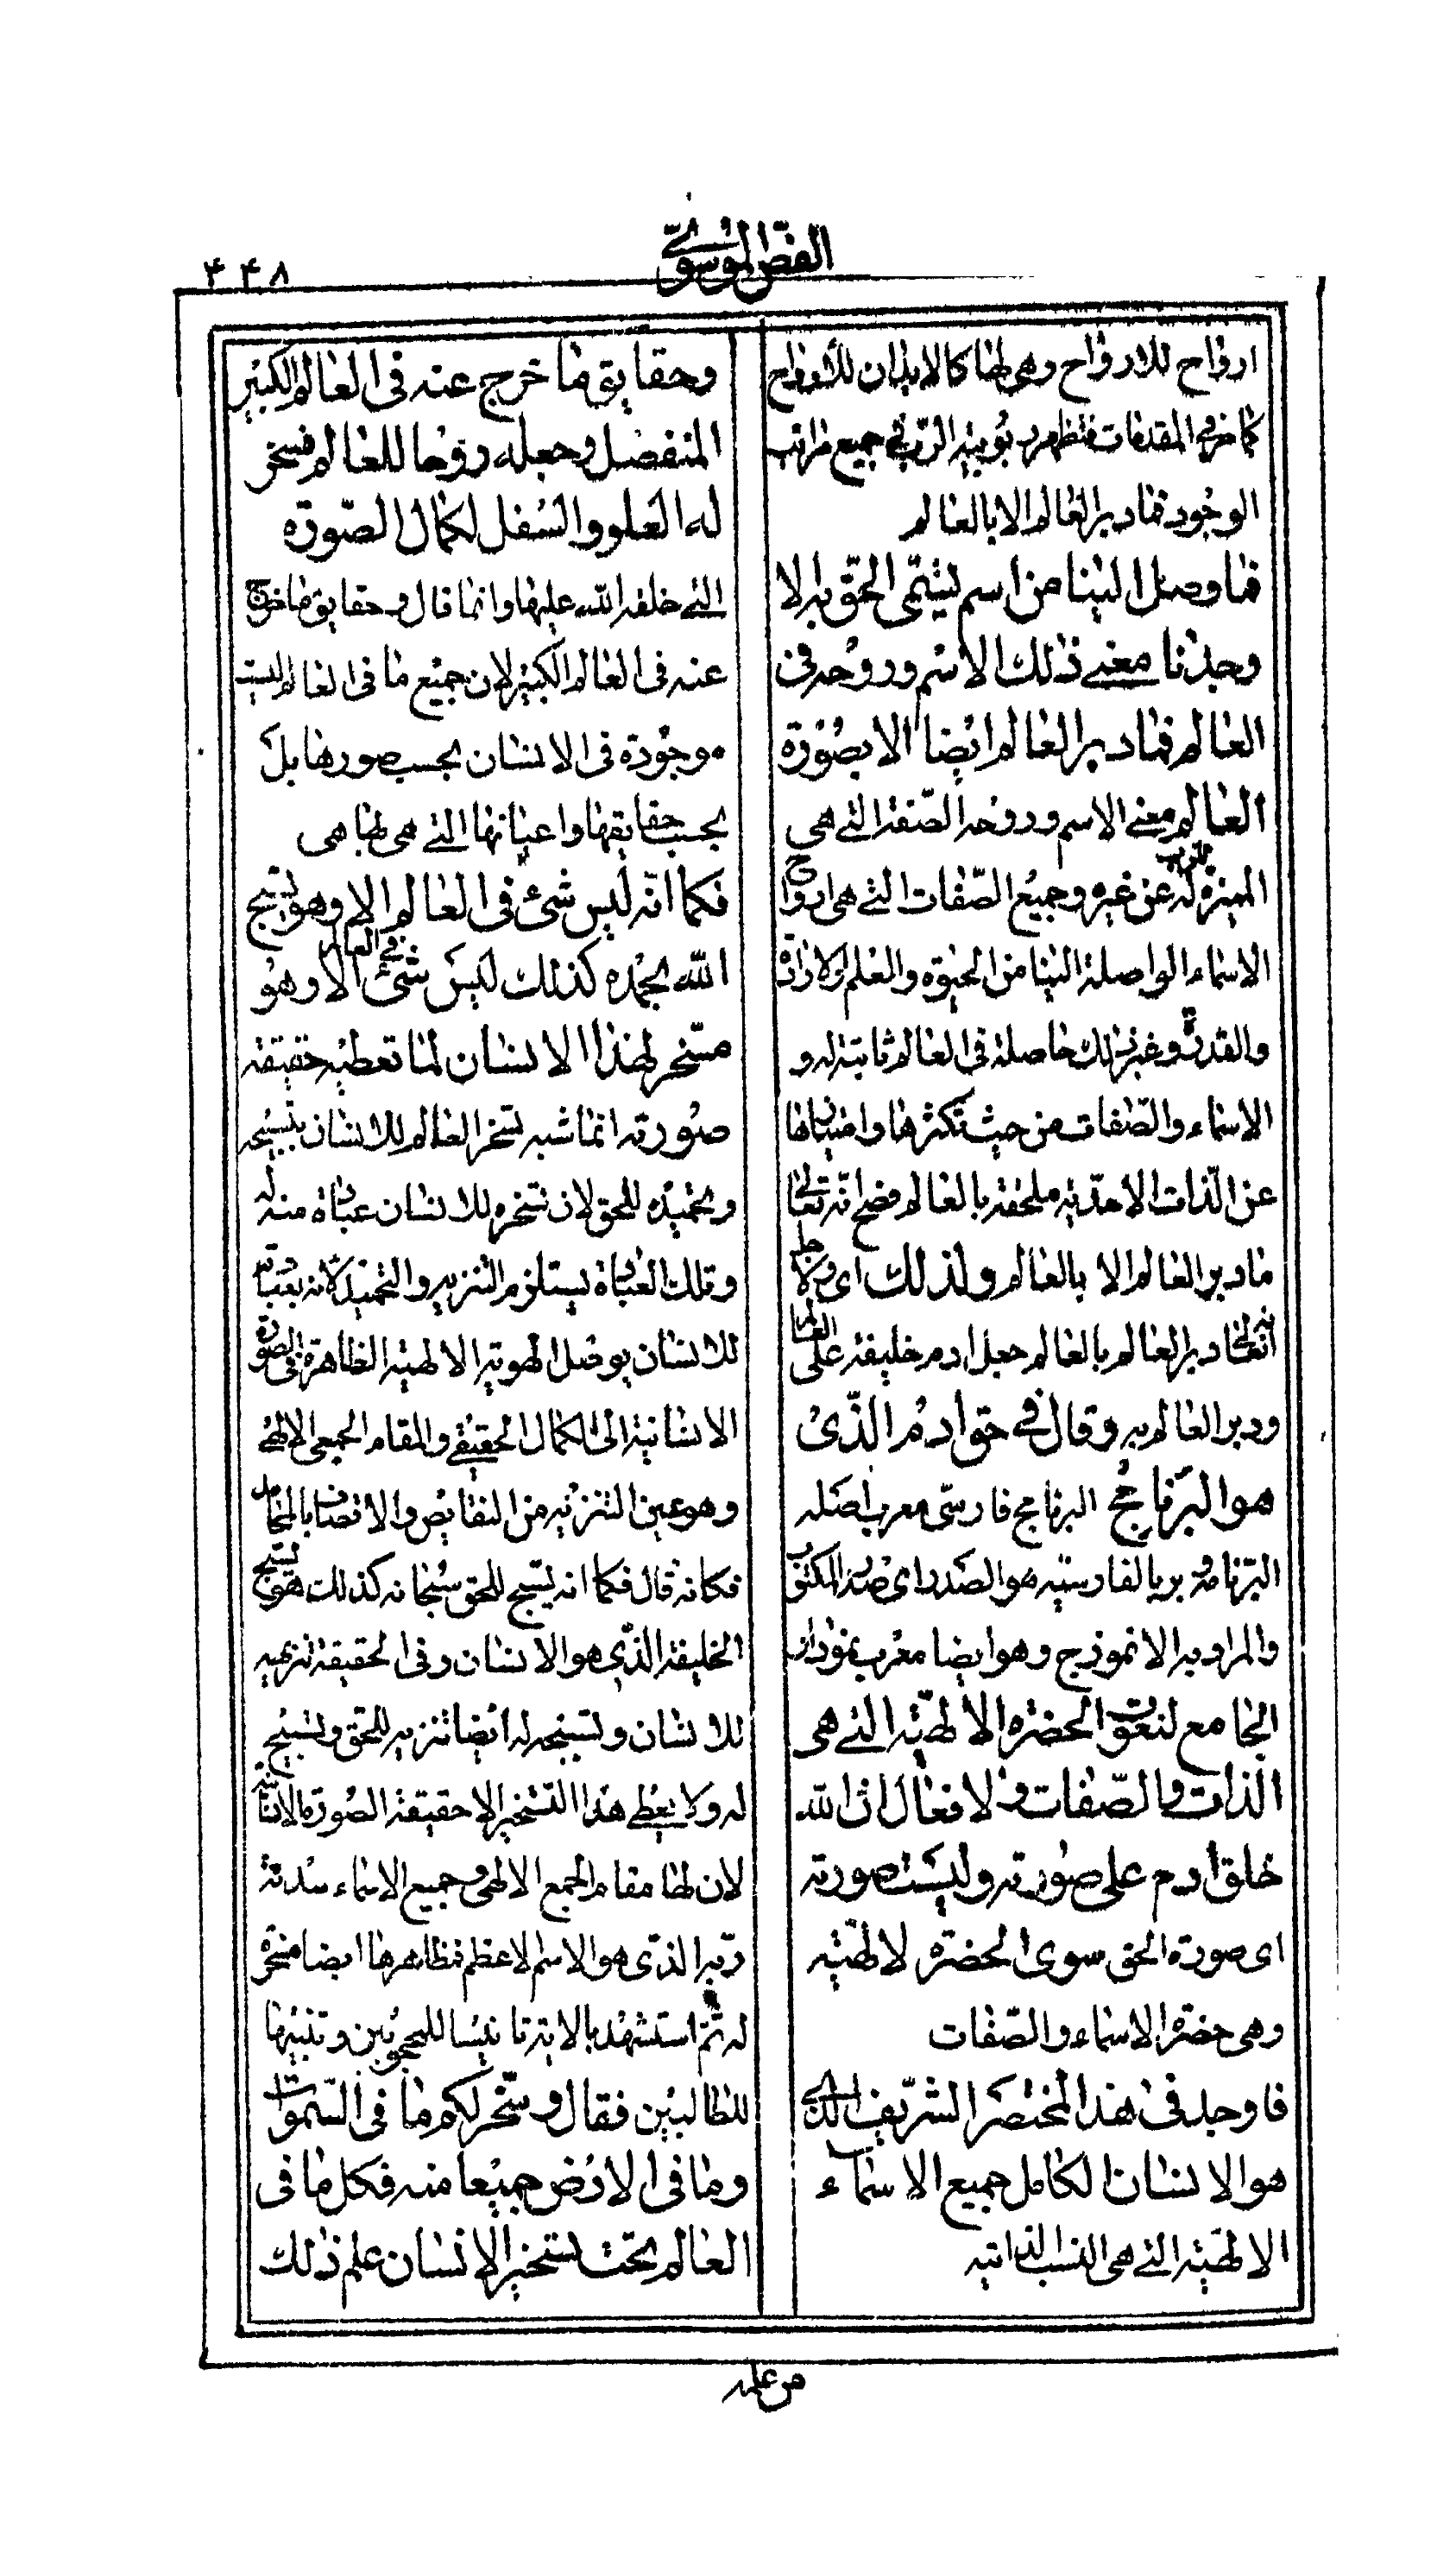 الفص الموسوي
۴۴۸
ارواح للارواح وهی لها كالابدان للارواح
كما مر فی المقدمات فتظهر ربوبیته الرب فی جمیع مراتب
الوجود فما دبر العالم الا بالعالم
فما وصل الینا من اسم یسمّی الحقّ به الا
وجدنا معنی ذلك الاسم وروحه فی
العالم فما دبر العالم ایضا الا بصورة
العالم معنی الاسم وروحه الصّفة التی هی
الممیزة له عن غیره وجمیع الصّفات التی هی ارواح
الاسماء الواصلة الینا من الحیوة والعلم والارادة
والقدرة وغیر ذلك حاصلة فی العالم ثابتة له و
الاسماء والصّفات من حیث تكثرها وامتیازها
عن الذّات الاحدیّة ملحقة بالعالم فصح انّه تعالی
ما دبر العالم الا بالعالم ولذلك ای ولاجل
انه تعالی دبر العالم بالعالم جعل ادم خلیفة علی العالم
ودبر العالم به وقال فی حق ادم الذّی
هو البرنامج البرنامج فارسّی معرب اصله
البرنامه وبر بالفارسیّه هو الصّدر ای صدر المكتوب
والمراد به الانموذج وهو ایضا معرب نمودار
الجامع لنعوت الحضرة الالهیّة التی هی
الذات والصّفات والافعال ان الله
خلق ادم علی صورته ولیست صورته
ای صورة الحق سوی الحضرة الالهیّة
وهی حضرة الاسماء والصّفات
فاوجد فی هذا المختصر الشّریف الذی
هو الانسان الكامل جمیع الاسماء
الالهیّة التی هی النسب الذاتیه
وحقایق ما خرج عنه فی العالم الكبیر
المنفصل وجعله روحا للعالم فسخر
له العلو والسفل لكمال الصّورة
التی خلقه الله علیها وانما قال وحقایق ما خرج
عنه فی العالم الكبیر لان جمیع ما فی العالم لیست
موجودة فی الانسان بحسب صورها بل
بحسب حقایقها واعیانها التی هی بها هی
فكما انّه لیس شئ فی العالم الا وهو یسبّح
الله بحمده كذلك لیس شئ فی العالم الا وهو
مسّخر لهذا الانسان لما تعطیه حقیقة
صورته انما شبه تسخر العالم للانسان بتسبیحه
وتحمیده للحق لان تسخره للانسان عبادة منه له
وتلك العبادة یستلزم التنزیه والتحمید لانه بعبادته
للانسان یوصل الهویة الالهیّة الظاهرة فی الصورة
الانسانیّة الی الكمال الحقیقی والمقام الجمعی الالهی
وهو عین التنزیه من النقایص والاتصاف بالمحامد
فكانه قال فكما انه یسبّح للحق سبحانه كذلك هو یسبّح
الخلیفة الذّی هو الانسان وفی الحقیقة تنزیهه
للانسان وتسبیحه له ایضا تنزیه للحق وتسبیح
له ولا یعطی هذا التسخیر الا حقیقة الصورة الانسانیّة
لان لها مقام الجمع الالهی وجمیع الاسماء سدنة
ربّه الذّی هو الاسم الاعظم فمظاهرها ایضا مسخّرة
له ثمّ استشهد بالایة تانیسا للمحجوبین وتنبیها
للطالبین فقال وسخّر لكم ما فی السّموات
وما فی الارض جمیعا منه فكل ما فی
العالم تحت تسخیر الانسان علم ذلك
من علمه